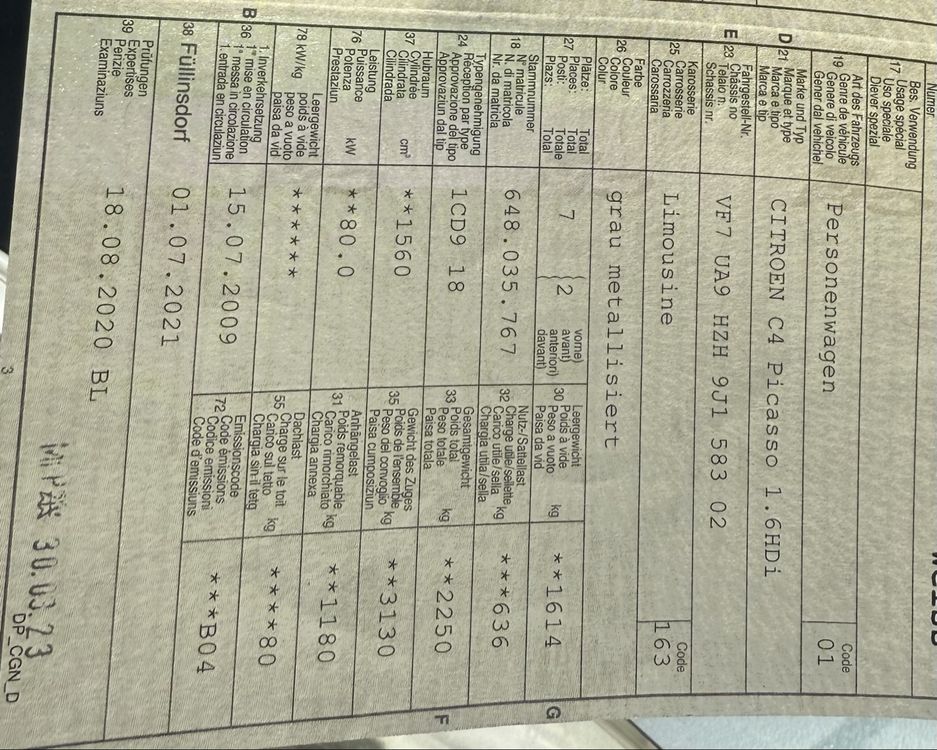 Numer
Bes. Verwendung
17 Usage spécial
Uso speciale
Diever spezial
Art des Fahrzeugs
19 Genre de véhicule
Genere di veicolo
Gener dal vehichel
Personenwagen
Code
01
Marke und Typ
D 21 Marque et type
Marca e tipo
Marca e tip
CITROEN C4 Picasso 1.6HDi
Fahrgestell-Nr.
E 23 Châssis no
Telaio n.
Schassis nr.
VF7 UA9 HZH 9J1 583 02
Karosserie
25 Carrosserie
Carrozzeria
Carossaria
Limousine
Code
163
Farbe
26 Couleur
Colore
Colur
grau metallisiert
Plätze: Total
27 Places: Total
Posti: Total
Plazs: Total
7
2
vorne)
avant)
anteriori)
davant)
Leergewicht
30 Poids à vide
Peso a vuoto
Paisa da vid
kg
**1614
G
Stammnummer
18 N° matricule
N. di matricola
Nr. da matricla
648.035.767
Nutz-/Sattellast
32 Charge utile/sellette
Carico utile/sella
Chargia utila/sella
kg
***636
Typengenehmigung
24 Réception par type
Approvazione del tipo
Approvaziun dal tip
1CD9 18
Gesamtgewicht
33 Poids total
Peso totale
Paisa totala
kg
**2250
F
Hubraum
37 Cylindrée
Cilindrata
Cilindrada
cm³
**1560
Gewicht des Zuges
35 Poids de l'ensemble
Peso del convoglio
Paisa cumposiziun
kg
**3130
Leistung
76 Puissance
Potenza
Prestaziun
kW
**80.0
Anhängelast
31 Poids remorquable
Carico rimorchiato
Chargia annexa
kg
**1180
Leergewicht
78 kW/kg poids à vide
peso a vuoto
paisa da vid
******
Dachlast
55 Charge sur le toit
Carico sul tetto
Chargia sin il tetg
kg
****80
1. Inverkehrsetzung
B 36 1re mise en circulation
1a messa in circolazione
1. entrada en circulaziun
15.07.2009
Emissionscode
72 Code émissions
Codice emissioni
Code d'emissiuns
***B04
38 Füllinsdorf
01.07.2021
Prüfungen
39 Expertises
Perizie
Examinaziuns
18.08.2020 BL
30.03.23
3
DP_CGN_D